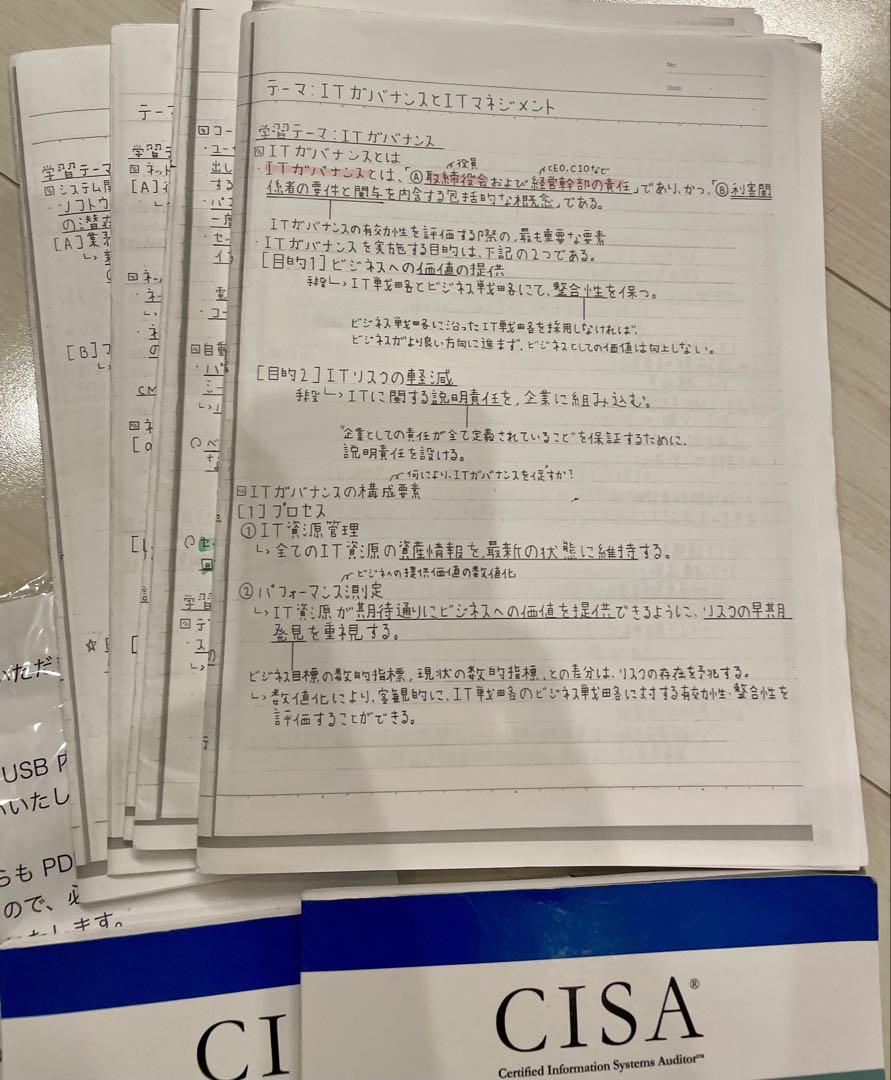 No.
Date
テーマ：ITガバナンスとITマネジメント
学習テーマ：ITガバナンス
ITガバナンスとは
役員
CEO,CIOなど
・ITガバナンスとは、「Ⓐ取締役会および経営幹部の責任」であり、かつ、「Ⓑ利害関
係者の要件と関与を内含する包括的な概念」である。
ITガバナンスの有効性を評価する際の、最も重要な要素
・ITガバナンスを実施する目的は、下記の2つである。
[目的1]ビジネスへの価値の提供
手段↳IT戦略とビジネス戦略にて、整合性を保つ。
ビジネス戦略に沿ったIT戦略を採用しなければ、
ビジネスがより良い方向に進まず、ビジネスとしての価値は向上しない。
[目的2]ITリスクの軽減
手段↳ITに関する説明責任を、企業に組み込む。
"企業としての責任が全て定義されていること"を保証するために、
説明責任を設ける。
何により、ITガバナンスを促すか?
ITガバナンスの構成要素
[1]プロセス
①IT資源管理
↳全てのIT資源の資産情報を、最新の状態に維持する。
ビジネスへの提供価値の数値化
②パフォーマンス測定
↳IT資源が期待通りにビジネスへの価値を提供できるように、リスクの早期
発見を重視する。
ビジネス目標の数的指標、現状の数的指標、との差分は、リスクの存在を予兆する。
↳数値化により、客観的に、IT戦略のビジネス戦略に対する有効性・整合性を
評価することができる。
学習テーマ
システム開
・ソフトウ
の潜
[A]業務
[B]
テーマ
学習テ
ネット
[A]
いただ
USB P
いいたし
らも PD
ので、必
たします。
CI
CISA®
Certified Information Systems Auditor™